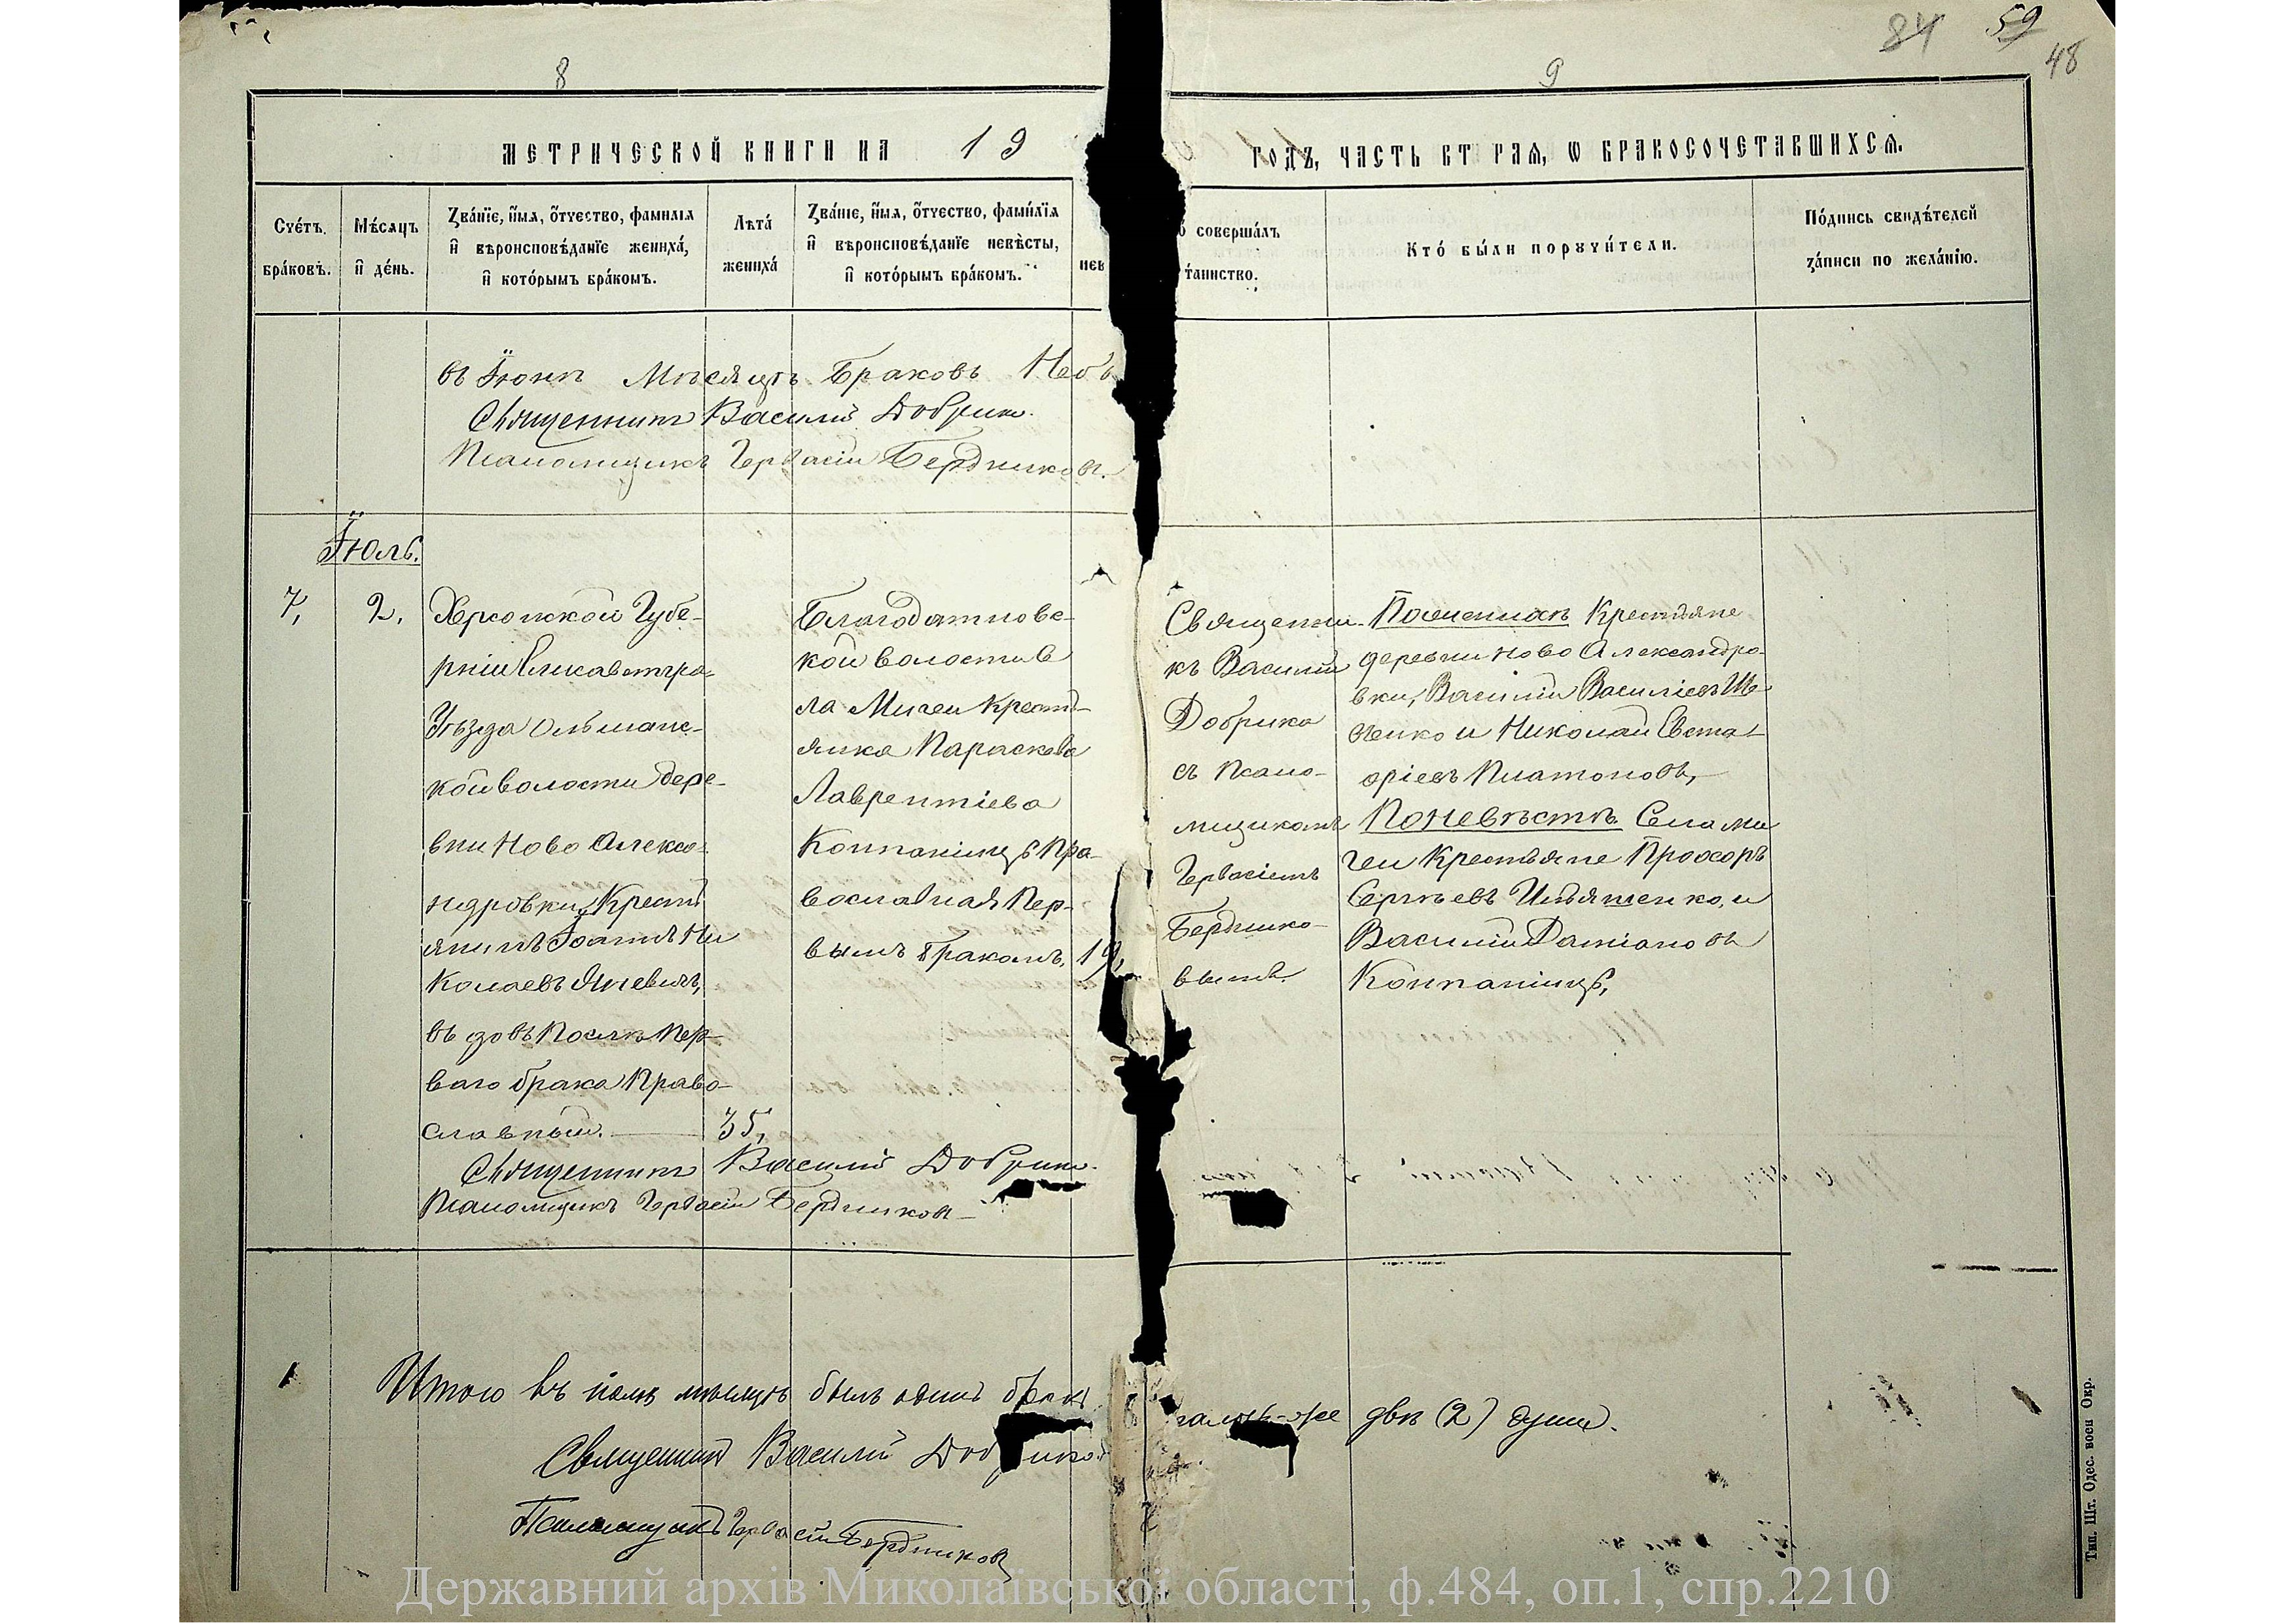 8
9
84 59
48
МЕТРИЧЕСКОЙ КНИГИ НА 19
ГОДЪ, ЧАСТЬ ВТ РАЯ, Ѡ БРАКОСОЧЕТАВШИХСЯ.
Счетъ браковъ.
Мѣсяцъ и день.
Званїе, имя, отчество, фамилїя и вѣроисповѣданїе жениха, и которымъ бракомъ.
Лѣта жениха
Званїе, имя, отчество, фамилїя и вѣроисповѣданїе невѣсты, и которымъ бракомъ.
нев
совершалъ
таинство.
Кто были поручители.
Подпись свидѣтелей записи по желанїю.
въ Іюнѣ Мѣсяцѣ Браковъ Небъ
Священникъ Василій Добрик
Псаломщикъ Гервасій Бердниковъ.
Іюль.
7,
2.
Херсонской Губе-
рніи Елисаветгра-
Уѣзда Ольшанс-
кой волости дере-
вни Ново Алекса-
ндровки, Крестъ
янинъ Іоаннъ Ни
колаевъ
въ довъ Послѣ Пер-
ваго брака Право-
славный. 35,
Благодатновс-
кой волости Се
ла Мигеи Крестъ-
янка Параскева
Лаврентіева
Компаніицъ Пра-
вославная Пер-
вымъ бракомъ, 19,
Священни-
къ Василій
Добрико
съ Псало-
мщикомъ
Гервасіемъ
Берднико-
вымъ.
По женихѣ Крестьяне
деревни Ново Александро-
вки, Василій Василіевъ Ше-
вченко и Николай Евста-
фіевъ Платоновъ,
По невѣстѣ Села Ми
геи Крестьяне Прохоръ
Сергѣевъ Ильяшенко, и
Василій Даміановъ
Компаніицъ,
Священникъ Василій Добрик
Псаломщикъ Гервасій Бердниковъ
1
Итого въ іюлѣ мѣсяцѣ былъ одинъ бракъ
двѣ (2) души.
1
Священникъ Василій Добрико
Псаломщикъ Гервасій Бердниковъ
Тип. Шт. Одес. воен Окр.
Державний архів Миколаївської області, ф.484, оп.1, спр.2210